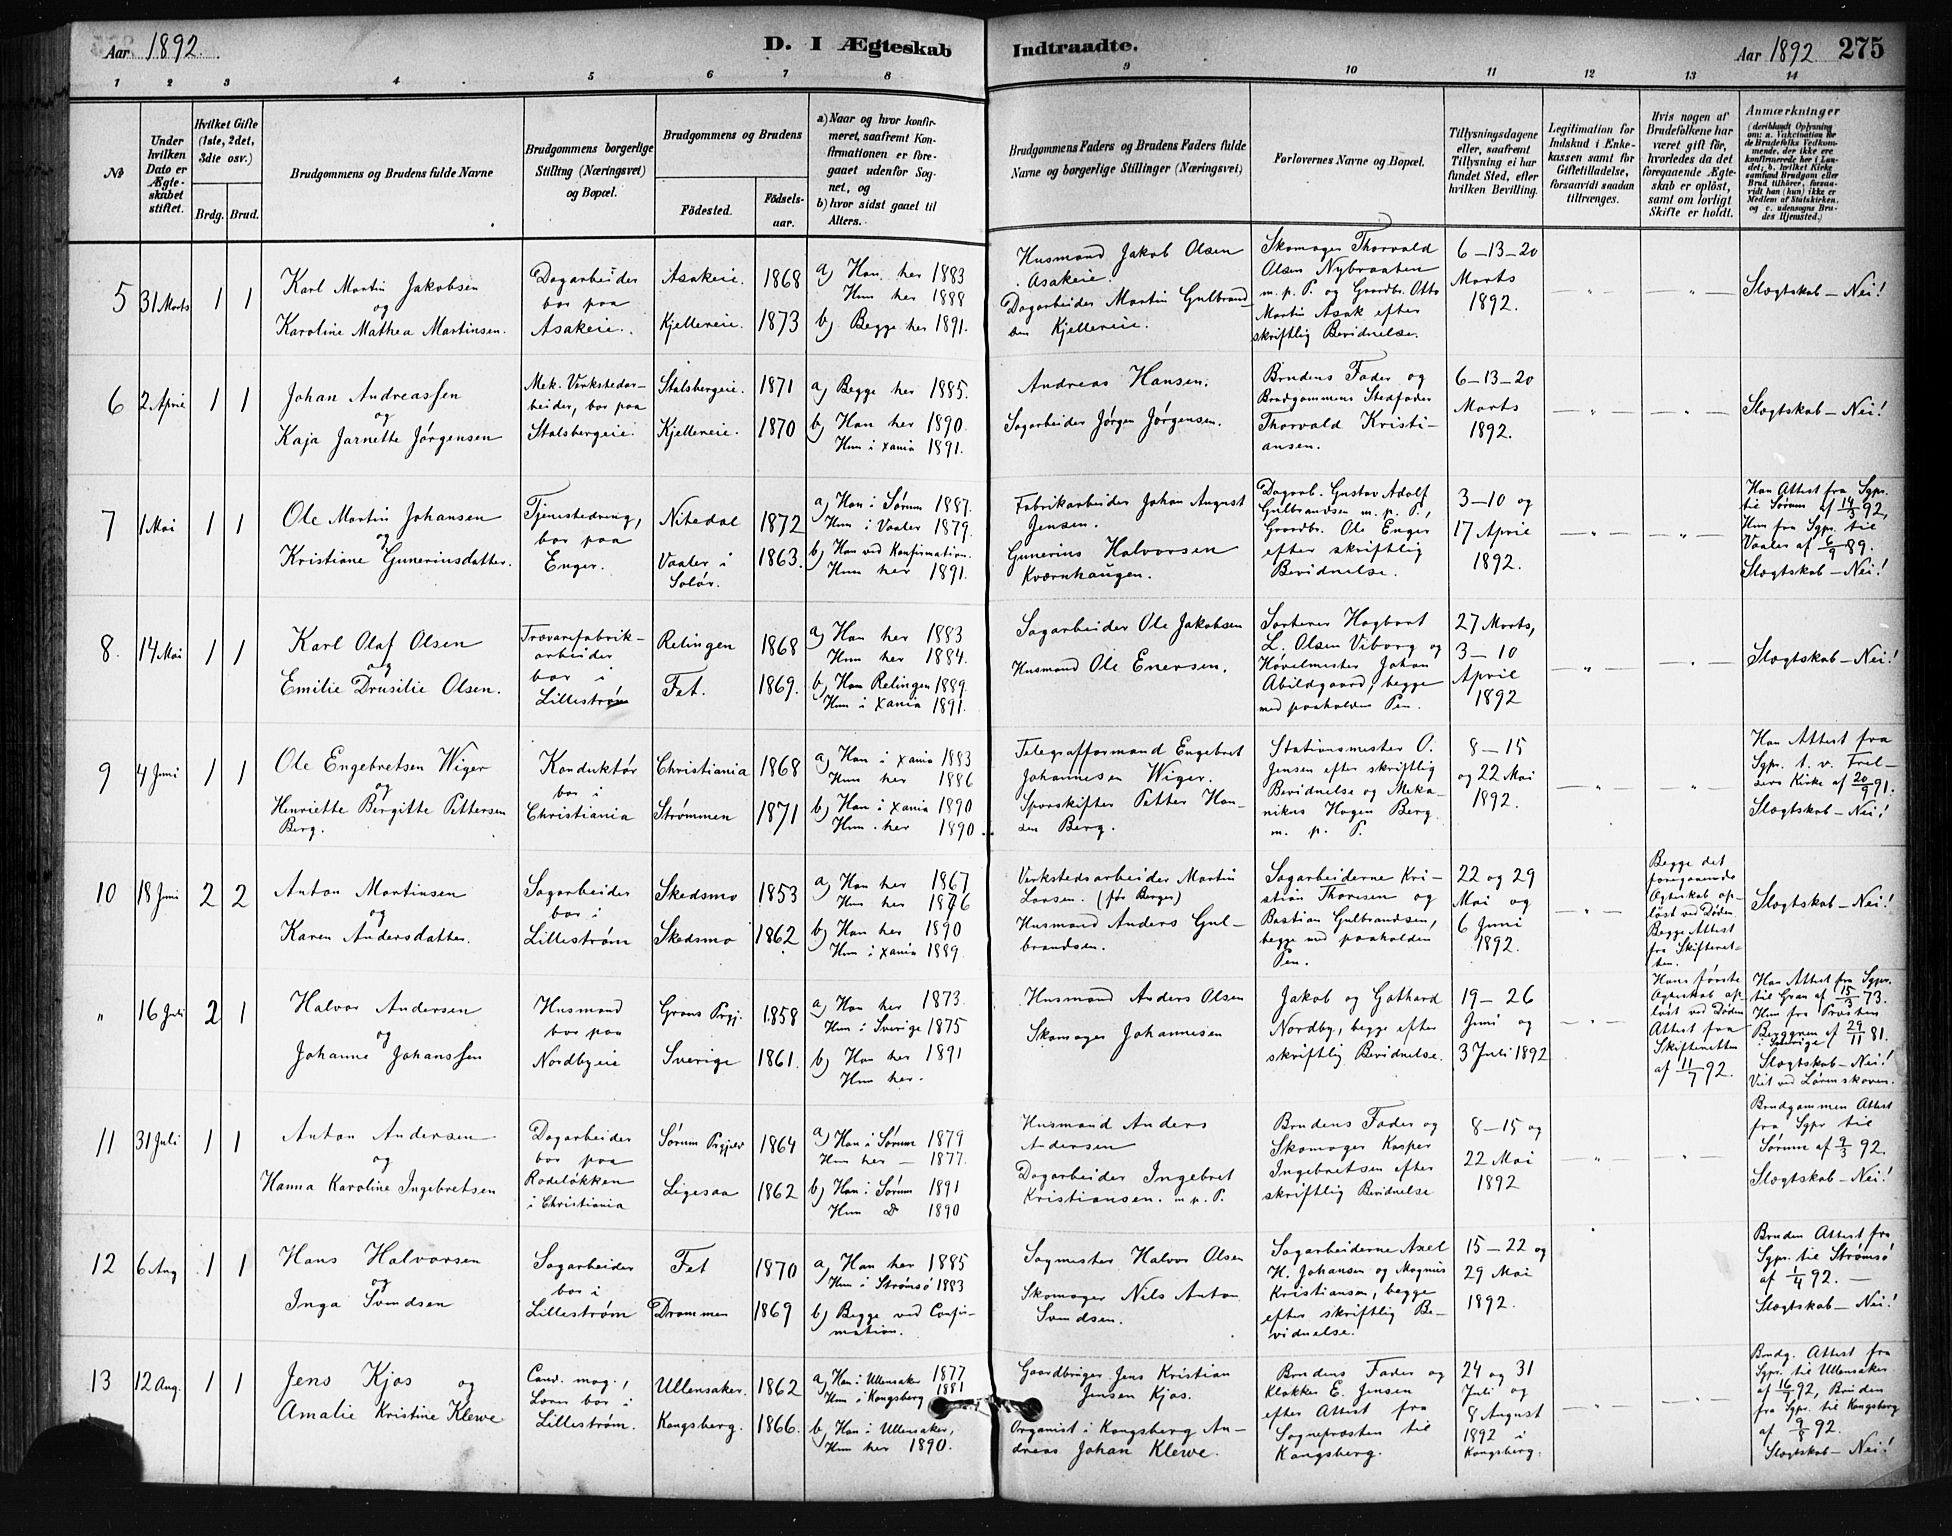 Aar 1892.
D. I Ægteskab
Indtraadte.
Aar 1892
275
1 2 3 4 5 6 7 8 9 10 11 12 13 14
No
Under hvilken Dato er Ægteskabet stiftet.
Hvilket Gifte (1ste, 2det, 3die osv.)
Brdg. Brud.
Brudgommens og Brudens fulde Navne
Brudgommens borgerlige Stilling (Næringsvei) og Bopæl.
Brudgommens og Brudens
Fødested.
Fødselsaar.
a) Naar og hvor konfirmeret, saafremt Konfirmationen er foregaaet udenfor Sognet, og
b) hvor sidst gaaet til Alters.
Brudgommens Faders og Brudens Faders fulde Navne og borgerlige Stillinger (Næringsvei)
Forlovernes Navne og Bopæl.
Tillysningsdagene eller, saafremt Tillysning ei har fundet Sted, efter hvilken Bevilling.
Legitimation for Indskud i Enkekassen samt for Giftetilladelse, forsaavidt saadan tiltrænges.
Hvis nogen af Brudefolkene har været gift før, hvorledes da det foregaaende Ægteskab er opløst, samt om lovligt Skifte er holdt.
Anmærkninger
(deriblandt Oplysning om: a. Vakcination for de Brudefolks Vedkommende, der ikke ere konfirmerede her i Landet; b. hvilket Kirkesamfund Brudgom eller Brud tilhører, forsaavidt han (hun) ikke er Medlem af Statskirken. og c. udensogns Brudes Hjemsted.)
5
31 Marts
1 1
Karl Martin Jakobsen
og
Karoline Mathea Martinsen.
Dagarbeider
bor paa
Asakeie.
Asakeie. 1868
Kjellereie. 1873
a) Han her 1883
Hun her 1888
b) Begge her 1891.
Husmand Jakob Olsen
Asakeie.
Dagarbeider Martin Gulbrandsen Kjellereie.
Skomager Thorvald
Olsen Nybraaten
m. p. P. og Gaardbr. Otto
Martin Asak efter
skriftlig Bevidnelse.
6–13–20
Marts
1892.
Slægtskab – Nei!
6
2 April
1 1
Johan Andreassen
og
Kaja Jarnette Jørgensen
Mek. Verkstedarbeider, bor paa
Stalsbergeie.
Stalsbergeie. 1871
Kjellereie. 1870
a) Begge her 1885.
b) Han her 1890.
Hun i Xania 1891.
Andreas Hansen.
Sagarbeider Jørgen Jørgensen.
Brudens Fader og
Brudgommens Stedfader
Thorvald Kristiansen.
6–13–20
Marts
1892.
Slægtskab – Nei!
7
1 Mai
1 1
Ole Martin Johansen
og
Kristiane Gunerinsdatter.
Tjenestedreng,
bor paa
Enger.
Nitedal 1872
Vaaler i Solør. 1863.
a) Han i Sørum 1887.
Hun i Vaaler 1879.
b) Han ved Konfirmation.
Hun her 1891.
Fabrikarbeider Johan August
Jensen.
Gunerius Halvorsen
Kværnhaugen.
Dagarb. Gustav Adolf
Gulbrandsen m. p. P.,
Gaardbr. Ole Enger
efter skriftlig
Bevidnelse.
3–10 og
17 April
1892.
Han Attest fra Sgpr.
til Sørum af 14/3 92,
Hun fra Sgpr. til
Vaaler af 6/9 89.
Slægtskab – Nei!
8.
14 Mai
1 1
Karl Olaf Olsen
og
Emilie Drusilie Olsen.
Trævarefabrikarbeider
bor i
Lillestrøm
Relingen 1868
Fet. 1869.
a) Han her 1883
Hun her 1884.
b) Han Relingen 1889.
Hun i Xania 1891.
Sagarbeider Ole Jakobsen
Husmand Ole Enersen.
Sorterer Hagbart
L. Olsen Viborg og
Høvelmester Johan
Abildgaard, begge
med paaholden Pen.
27 Marts,
3–10
April
1892
Slægtskab – Nei!
9
4 Juni
1 1
Ole Engebretsen Wiger
og
Henriette Bergitte Pettersen
Berg.
Konduktør
bor i
Christiania
Christiania 1868
Strømmen 1871
a) Han i Xania 1883
Hun her 1886
b) Han i Xania 1890
Hun her 1890.
Telegrafformand Engebret
Johannesen Wiger.
Sporskifter Petter Hansen Berg.
Stationsmester O.
Jensen efter skriftlig
Bevidnelse og Mekanikus Hagen Berg
m. p. P.
8–15
og 22 Mai
1892.
Han Attest fra
Sgpr. t. v. Frelsers Kirke af 20/9 91.
Slægtskab – Nei!
10
18 Juni
2 2
Anton Martinsen
og
Karen Andersdatter.
Sagarbeider
bor i
Lillestrøm
Skedsmo 1853
Skedsmo 1862
a) Han her 1867
Hun her 1876
b) Han her 1890
Hun i Xania 1889.
Verkstedsarbeider Martin
Larsen. (før Berger)
Husmand Anders Gulbrandsen.
Sagarbeiderne Kristian Thoresen og
Bastian Gulbrandsen,
begge med paaholden
Pen.
22 og 29
Mai og
6 Juni
1892.
Begge det
foregaaende
Egteskab opløst ved Døden
Begge Attest
fra Skifteretten.
Slægtskab – Nei!
"
16 Juli
2 1
Halvor Andersen
og
Johanne Johanssen
Husmand
bor paa
Nordbyeie
Grans Prgj. 1858
Sverige 1861.
a) Han her 1873.
Hun i Sverige 1875
b) Han her 1891
Hun her.
Husmand Anders Olsen
Skomager Johannesen
Jakob og Gothard
Nordby, begge efter
skriftlig Bevidnelse.
19–26
Juni og
3 Juli 1892
Hans første
Egteskab opløst ved Døden
Attest fra
Skifteretten
af 11/7 92.
Han Attest fra Sgpr.
til Gran af 15/3 73.
Hun fra Provsten
Berggren af 29/11 81.
i Sverige
Slægtskab – Nei!
Viet ved Lørenskoven.
11
31 Juli
1 1
Anton Andersen
og
Hanna Karoline Ingebretsen
Dagarbeider
bor paa
Rodeløkken
i Christiania
Sørum Prgjeld 1864
Ligesaa 1862
a) Han i Sørum 1879
Hun her – 1877.
b) Han i Sørum 1891
Hun Do 1890
Husmand Anders
Andersen
Dagarbeider Ingebret
Kristiansen. m. p. P.
Brudens Fader og
Skomager Kasper
Ingebretsen efter
skriftlig Bevidnelse
8–15 og
22 Mai
1892
Brudgommen Attest
fra Sgpr til
Sørum af 9/3 92.
Slægtskab – Nei!
12
6 Aug
1 1
Hans Halvorsen
og
Inga Svendsen
Sagarbeider
bor i
Lillestrøm
Fet 1870
Drammen 1869
a) Han her 1885
Hun i Strømsö 1883
b) Begge ved Confirmation.
Sagmester Halvor Olsen
Skomager Nils Anton
Svendsen.
Sagarbeiderne Axel
H. Johansen og Magnus
Kristiansen, begge
efter skriftlig Bevidnelse.
15–22 og
29 Mai
1892.
Bruden Attest fra
Sgpr. til Strømsö
af 1/4 92. –
Slægtskab – Nei!
13
12 Aug.
1 1
Jens Kjos og
Amalie Kristine Klewe
Cand. mag.,
Lærer bor i
Lillestrøm.
Ullensaker. 1862
Kongsberg. 1866.
a) Han i Ullensaker 1877
Hun i Kongsberg 1881
b) Han i Ullensaker,
Hun her 1890.
Gaardbruger Jens Kristian
Jensen Kjos.
Organist i Kongsberg Andreas Johan Klewe.
Brudens Fader og
Klokker E. Jensen
efter Attest fra
Sognepræsten til
Kongsberg.
24 og 31
Juli og
8 August
1892 i
Kongsberg.
Brudg. Attest fra
Sgpr. til Ullensaker
af 16/6 92, Bruden
fra Sgpr. til Kongsberg
af 9/8 92.
Slægtskab – Nei!